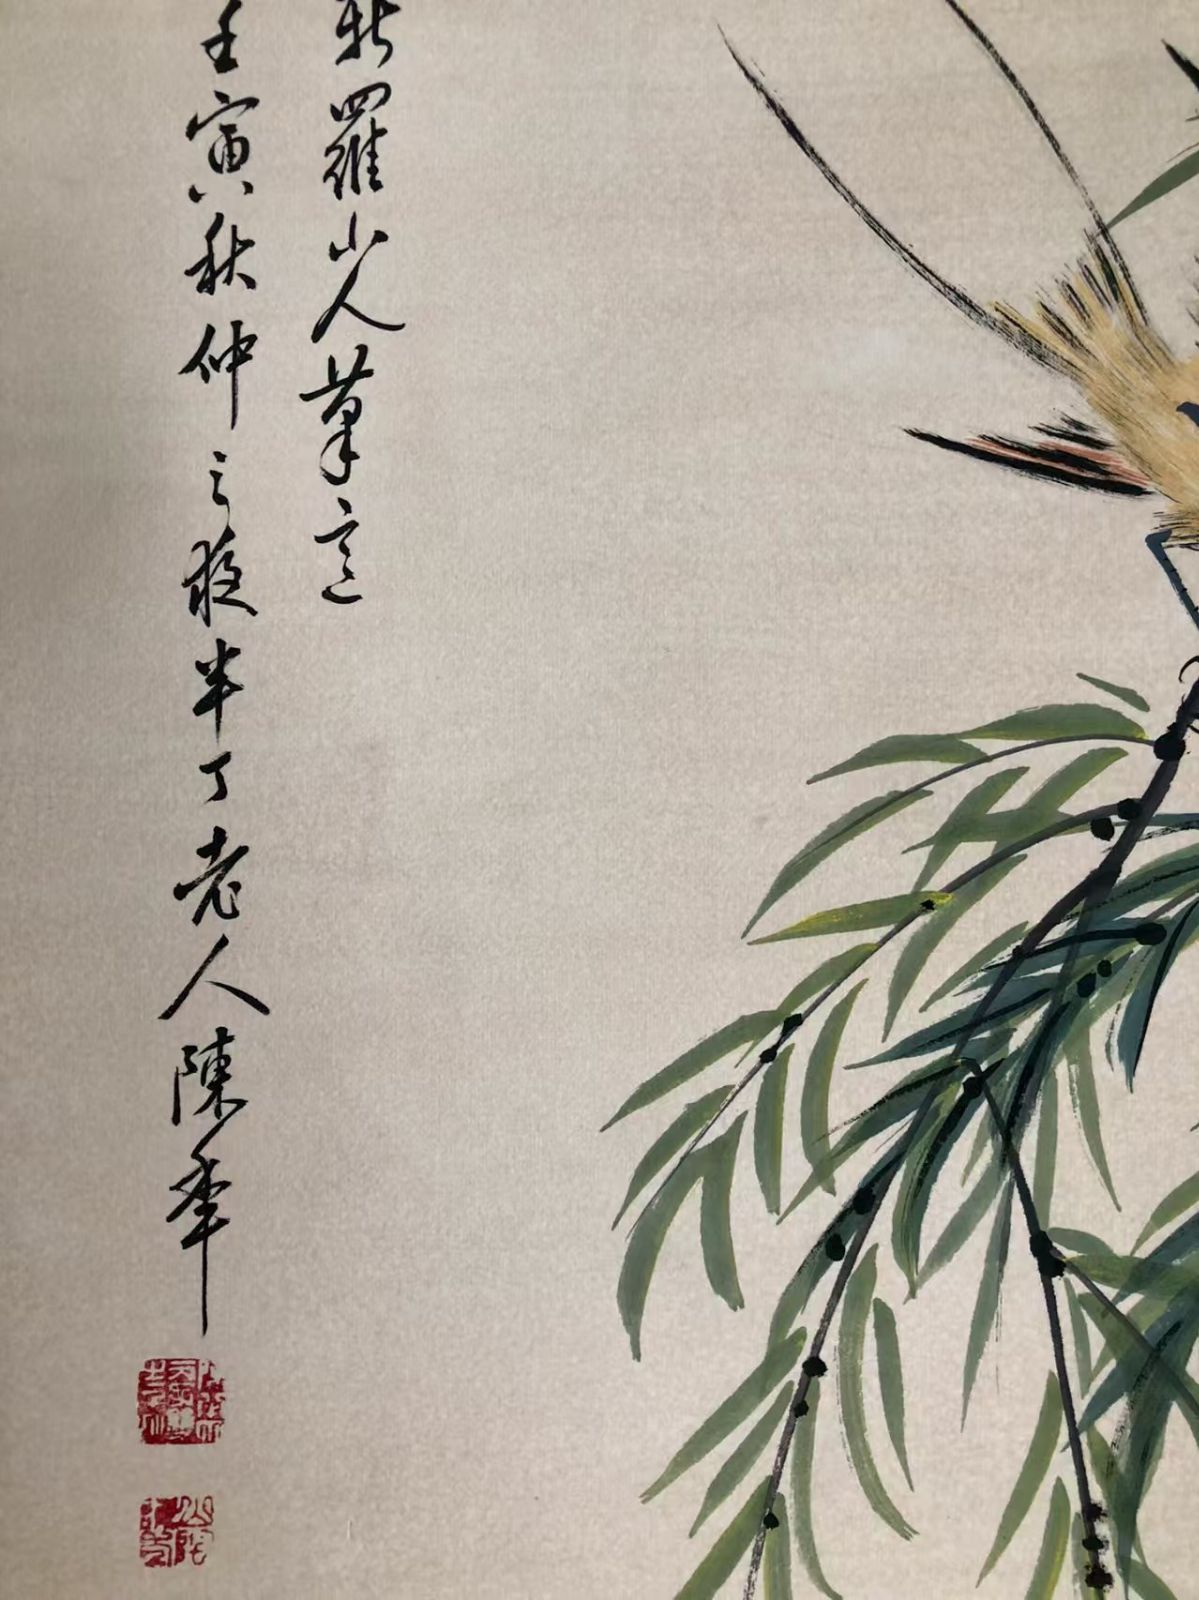 新羅山人筆意
壬寅秋仲之破半丁老人陳年